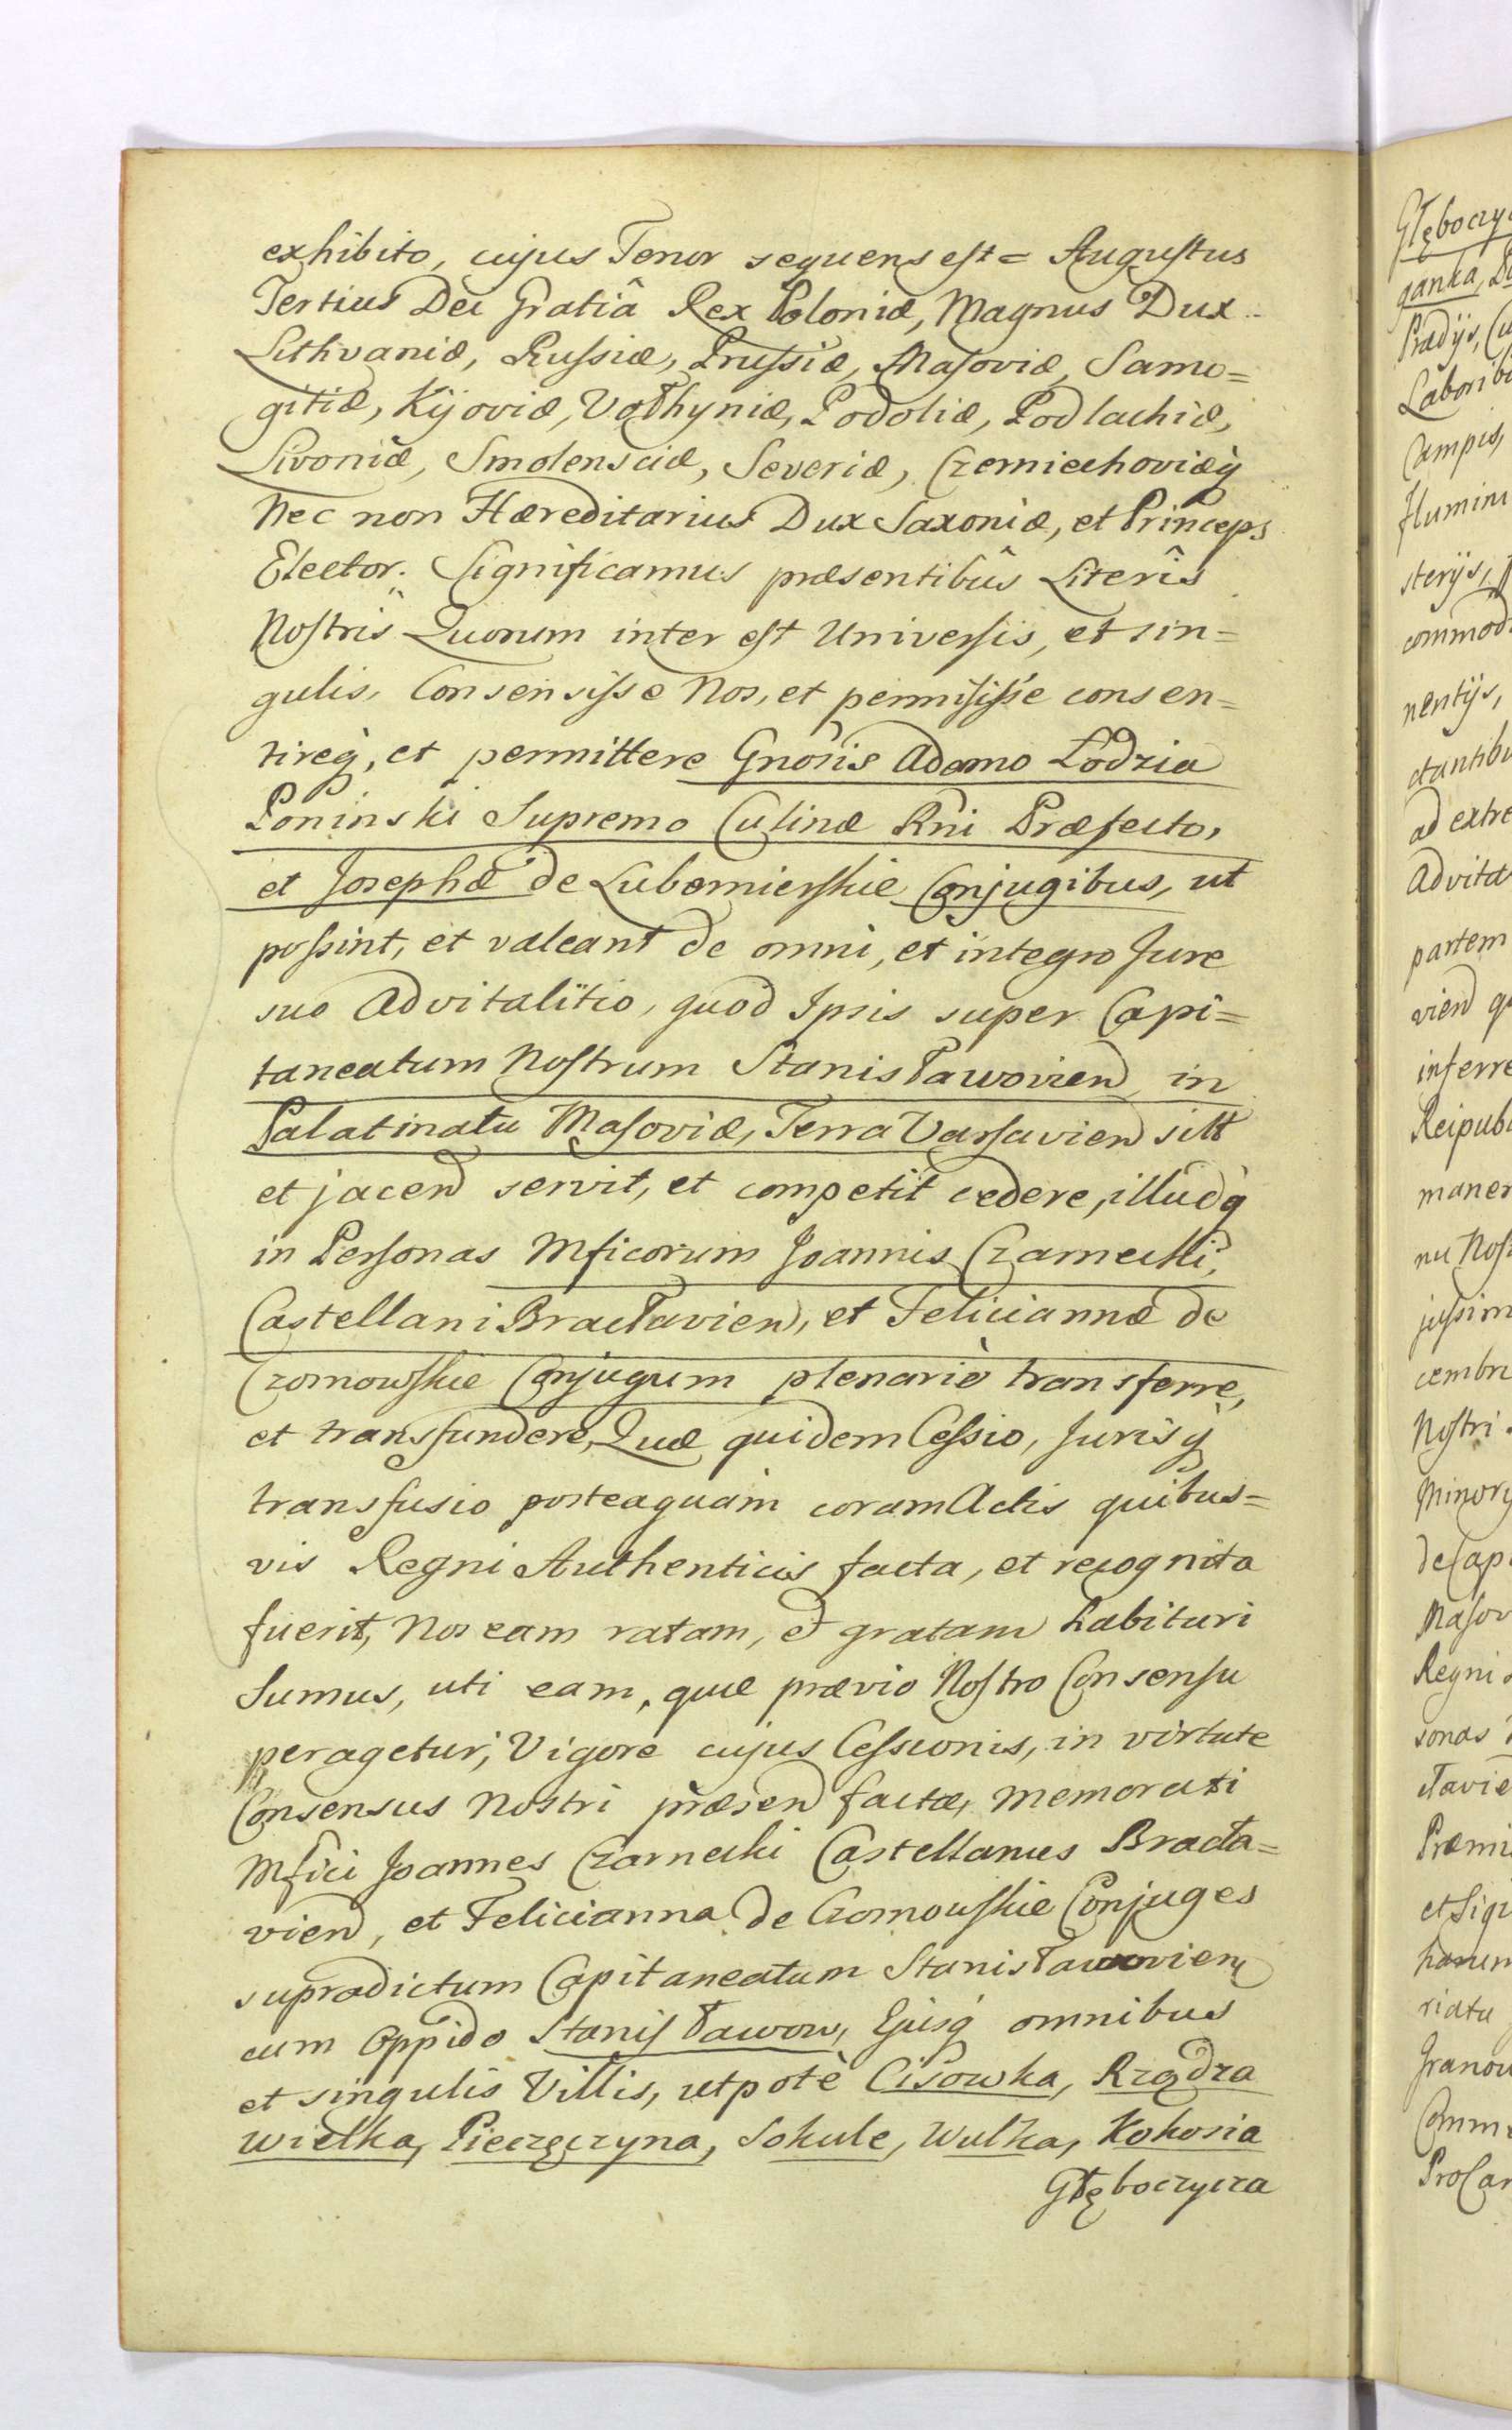 exhibito, cujus Tenor sequens est = Augustus
Tertius Dei Gratiâ Rex Poloniæ, Magnus Dux
Lithvaniæ, Russiæ, Prussiæ, Masoviæ, Samo=
gitiæ, Kijoviæ, Volhyniæ, Podoliæ, Podlachiæ,
Livoniæ, Smolensciæ, Severiæ, Czerniechoviæq̀
Nec non Hæreditarius Dux Saxoniæ, et Princeps
Elector. Significamus præsentibûs Literîs
Nostris Quorum inter est Universis, et sin=
gulis, Consensisse Nos, et permisisse consen=
tireq̀, et permittere Gnosis Adamo Łodzia
Poninski Supremo Culinæ Rni Præfecto,
et Josephæ de Lubomierskie Conjugibus, ut
possint, et valeant de omni, et integro Jure
suo Advitalitio, quod Ipsis super Capi=
taneatum Nostrum Stanisławovien in
Palatinatu Masoviæ, Terra Varsavien sitt
et jacen servit, et competit cedere, illudq̀
in Personas Mficorum Joannis Czarnecki,
Castellani Bracławien, et Feliciannæ de
Czomowskie Conjugum plenariè transferre,
et transfundere, Quæ quidem Cessio, Jurisq̀
transfusio posteaquam coram Actis quibus=
vis Regni Authenticis facta, et recognita
fuerit, Nos eam ratam, et gratam habituri
Sumus, uti eam, quæ prævio Nostro Consensu
peragetur, Vigore cujus Cessionis, in virtute
Consensus Nostri præsen factæ, memorati
Mfici Joannes Czarnecki Castellanus Bracła=
vien, et Felicianna de Czomowskie Conjuges
supradictum Capitaneatum Stanisławovien
cum Oppido Stanisławow, Ejusq̀ omnibus
et singulis Villis, utpotè Cisowka, Rządza
Wielka, Pieczęczyna, Sokule, Wulka, Kokosia
Głęboczycza
Głęboczy
ganka,
Prædijs,
Campis,
sterijs,
nentijs,
ad extre
Advita
partem
vien
inferre
Reipub
maner
nu Nos
jussim
cembri
Nostri
Minor
de Cap
Masov
Regni
sonas
Præmi
et Sigi
harum
riatu